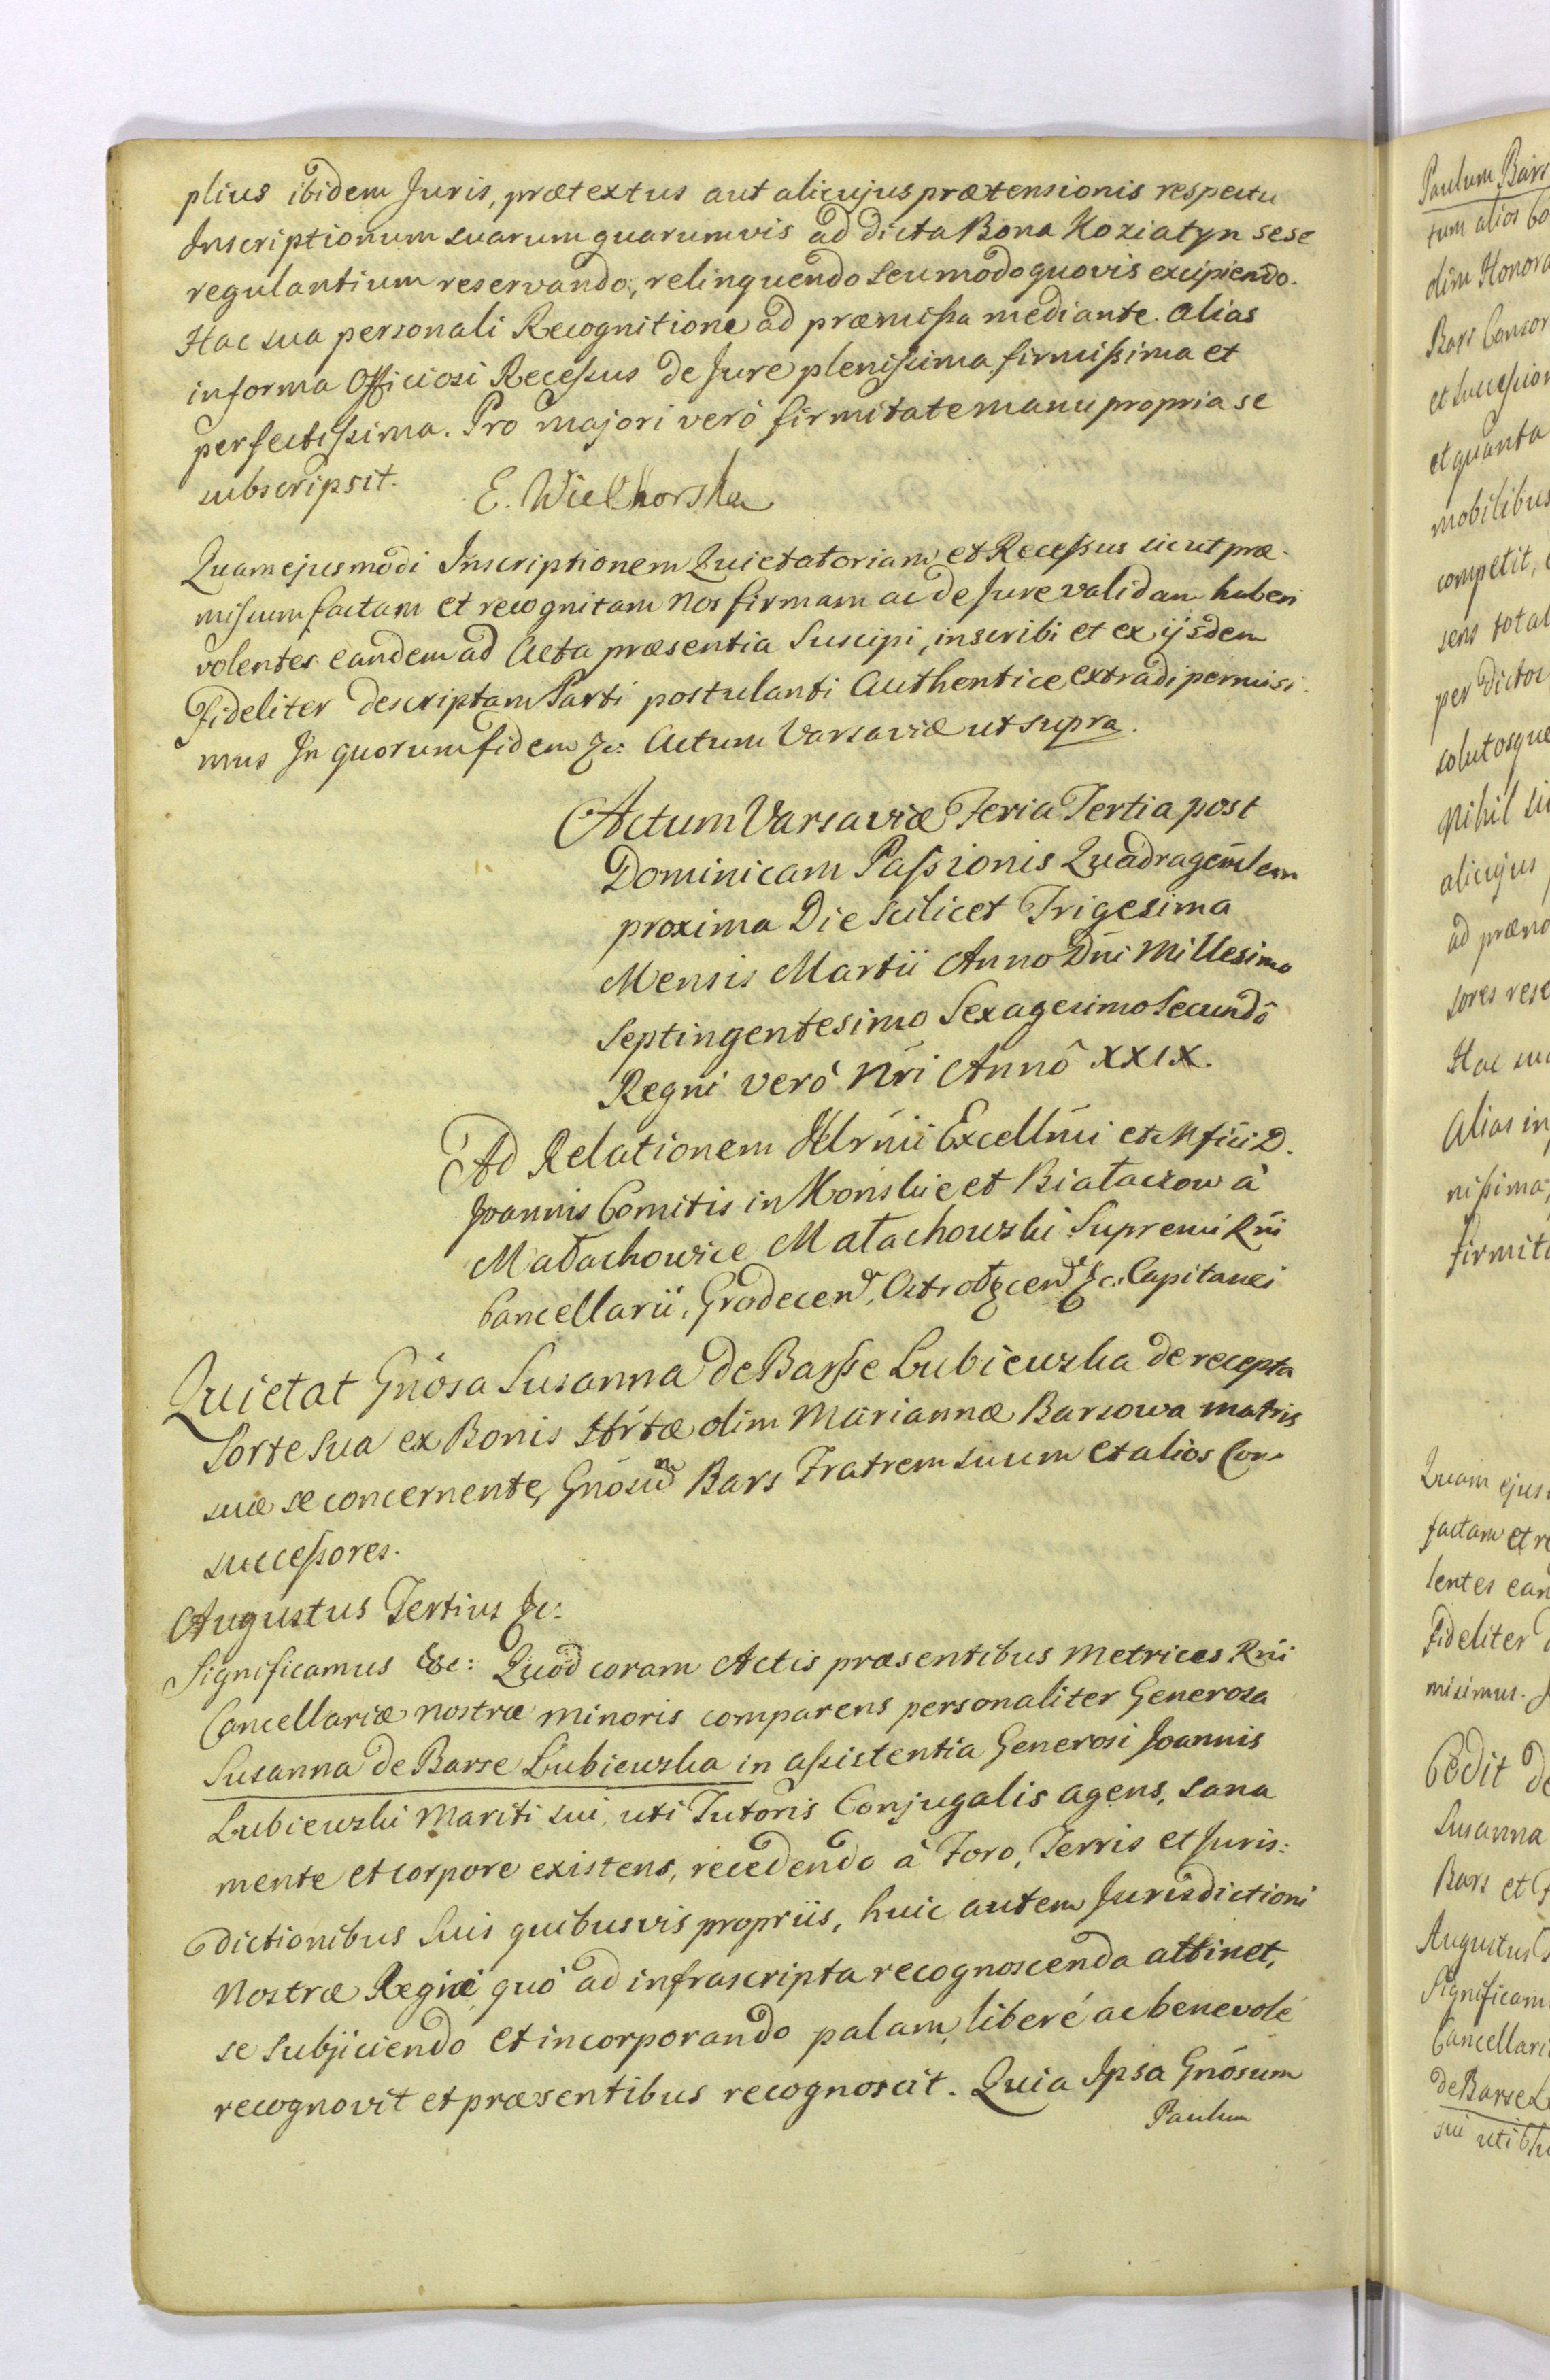 plius ibidem Juris, prætextus aut alicujus prætensionis respectu
Inscriptionum suarum quarumvis ad dicta Bona Koziatyn sese
regulantium reservando, relinquendo seu modo quovis excipiendo.
Hac sua personali Recognitione ad præmissa mediante. Alias
in forma Officiosi Recessus de Jure plenissima firmissima et
perfectissima. Pro majori verò firmitate manu propria se
subscripsit. E. Wielhorska
Quam ejusmodi Inscriptionem Quietatoriam et Recessus sicut præ-
missum factam et recognitam Nos firmam ac de Jure validam haberi
volentes eandem ad Acta præsentia Suscipi, inscribi et ex ijsdem
Fideliter descriptam Parti postulanti Authentice extradi permisi-
mus In quorum fidem &c: Actum Varsaviæ ut supra.
Actum Varsaviæ Feria Tertia post
Dominicam Passionis Quadragem̄lem
proxima Die scilicet Trigesima
Mensis Martii Anno Dn̄i Millesimo
Septingentesimo Sexagesimo Secundô
Regni verò Nr̄i Annô XXIX.
Ad Relationem Illr̄mi Excelln̄mi et Mfīci D.
Joannis Comitis in Końskie et Białaczow à
Małachowice Małachowski Supremi Rn̄i
Cancellarii, Grodecen, Ostrołęcen &c. Capitanei
Quietat Gn̄osa Susanna de Barsse Lubiewska de recepta
Sorte sua ex Bonis Hr̄tæ olim Mariannæ Barsowa matris
suæ se concernente, Gn̄osum Bars Fratrem suum et alios Con-
successores.
Augustus Tertius &c:
Significamus &c: Quod coram Actis præsentibus Metrices Rn̄i
Cancellariæ nostræ minoris comparens personaliter Generosa
Susanna de Barse Lubiewska in assistentia Generosi Joannis
Lubiewski Mariti sui, uti Tutoris Conjugalis agens, sana
mente et corpore existens, recedendo à Foro, Terris et Juris:
dictionibus Suis quibusvis propriis, huic autem Jurisdictioni
Nostræ Regiæ, quò ad infrascripta recognoscenda attinet,
se subjiciendo et incorporando palam, liberé ac benevolé
recognovit et præsentibus recognoscit. Quia Ipsa Gn̄osum
Paulum
Paulum Bars
tum alios Co
olim Honora
Bars Consor
et succession
et quanta
mobilibus
competit,
sens total
per dictos
solutosque
Nihil si
alicujus
ad præno
sores rese
Hac su
Alias in
nissima,
firmita
Quam ejus
factam et re
lentes ean
Fideliter
misimus.
Cedit de
Susanna
Bars et
Augustus
Significam
Cancellari
de Barse L
sui uti